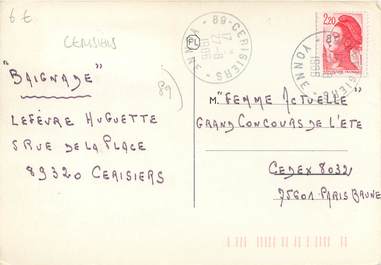 6 €
CERISIERS
"BAIGNADE"
89
LEFÈVRE HUGUETTE
5 RUE DE LA PLACE
89320 CERISIERS
89 - CERISIERS - YONNE
PL
17 H
22-8
1988
2,20
M. "FEMME ACTUELLE"
GRAND CONCOURS DE L'ETE
CEDEX 8032
75601 - PARIS BRUNE